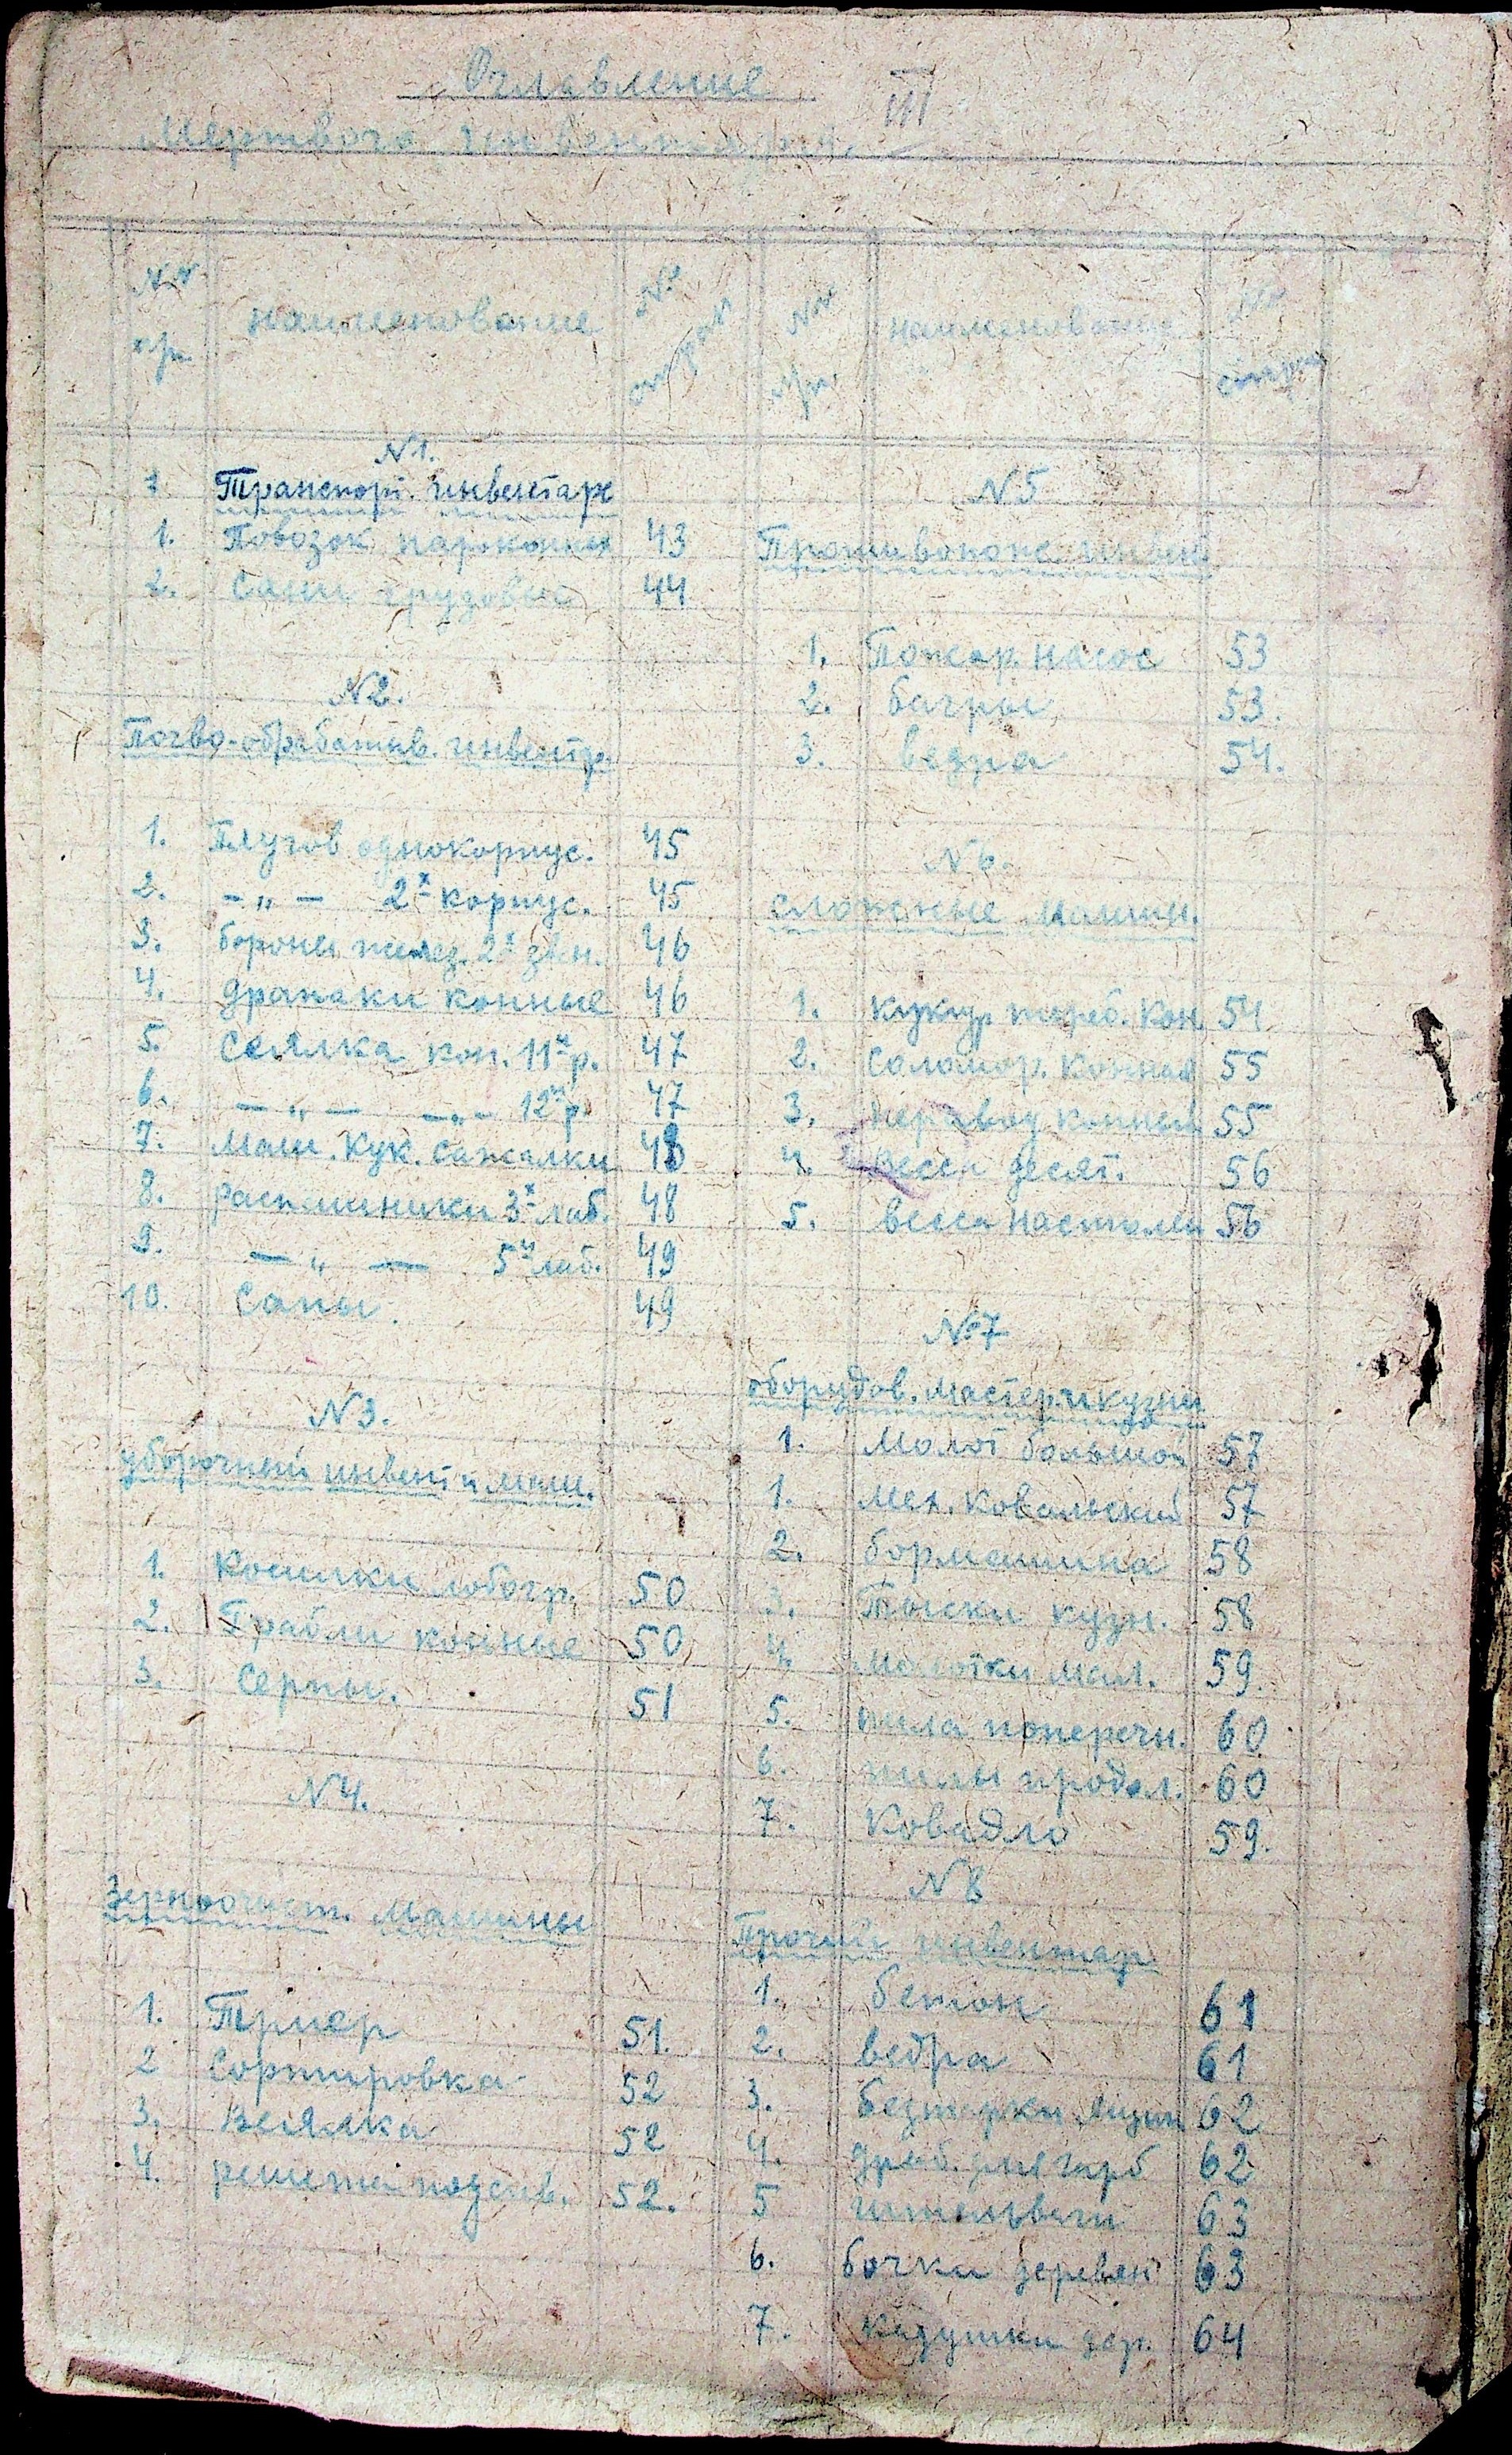 Оглавление
III
Мертвого инвентаря.
NN п/п
наименование
№ стран
NN п/п
наименование
NN стран
N1.
1 Транспорт. инвентарь
1. Повозок пароконных 43
2. Сани грузовые 44
N2.
Почво-обработив. инвентр.
1. Плугов однокорпус. 45
2. -„- 2х корпус. 45
3. бороны желез. 2х звен. 46
4. драпаки конные 46
5. Сеялка кон. 11ти р. 47
6. -„- -„- 12ти р. 47
7. Маш. кук. сажалки 48
8. распашники 3х лап. 48
9. -„- 5ти лап. 49
10. Сапы. 49
N3.
уборочный инвент и маш.
1. Косилки лобогр. 50
2. Грабли конные 50
3. Серпы. 51
N4.
Зерноочист. машины
1. Триер 51.
2 Сортировка 52
3. Веялка 52
4. решета подсев. 52.
N5
Противопож. инвен
1. Пожар. насос 53
2. багры 53.
3. ведра 54.
N6.
сложные машин.
1. кукур. тереб. кон. 54
2. Соломор. конная 55
3. перевод конный 55
4. Весы десят. 56
5. весы настолн 56
№7
оборудов. мастер. и кузни
1. Молот большой 57
1. Мех. ковальский 57
2. бормашина 58
3. Тыски кузн. 58
4. молотки мал. 59.
5. пила поперечн. 60
6. пилы продол. 60
7. Ковадло 59.
N8
Прочий инвентар
1. бетон 61
2. ведра 61
3. безтарки ящик 62
4. драб. для гарб 62
5 штельваги 63
6. бочки деревян 63
7. кадушки дер. 64